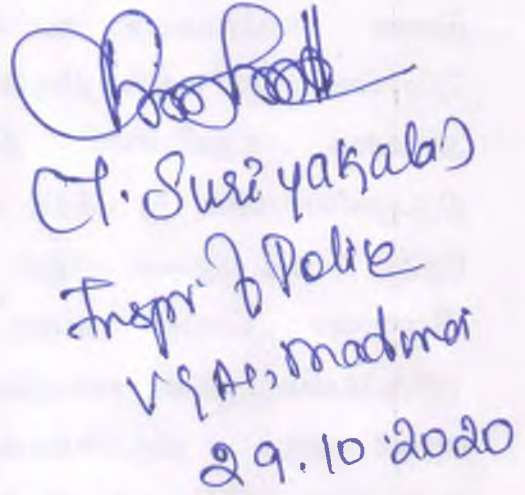 (T. Suriyakala)
Inspr. of Police
V & AC, Madurai
29.10.2020